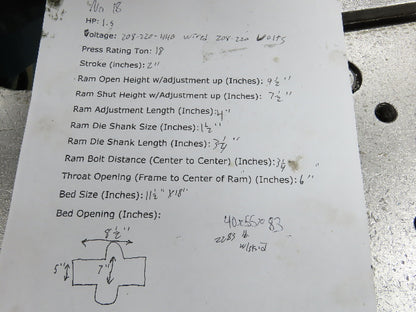 No 18
HP: 1.5
Voltage: 208-220-440 wired 208-220 Volts
Press Rating Ton: 18
Stroke (inches): 2"
Ram Open Height w/adjustment up (Inches): 9½"
Ram Shut Height w/adjustment up (Inches): 7½"
Ram Adjustment Length (Inches): 4"
Ram Die Shank Size (Inches): 1½"
Ram Die Shank Length (Inches): 3¼"
Ram Bolt Distance (Center to Center) (Inches): 3¼ "
Throat Opening (Frame to Center of Ram) (Inches): 6"
Bed Size (Inches): 11½"
Bed Opening (Inches):
40x55x83
2283 lb
w/skid
8½"
5"
7"